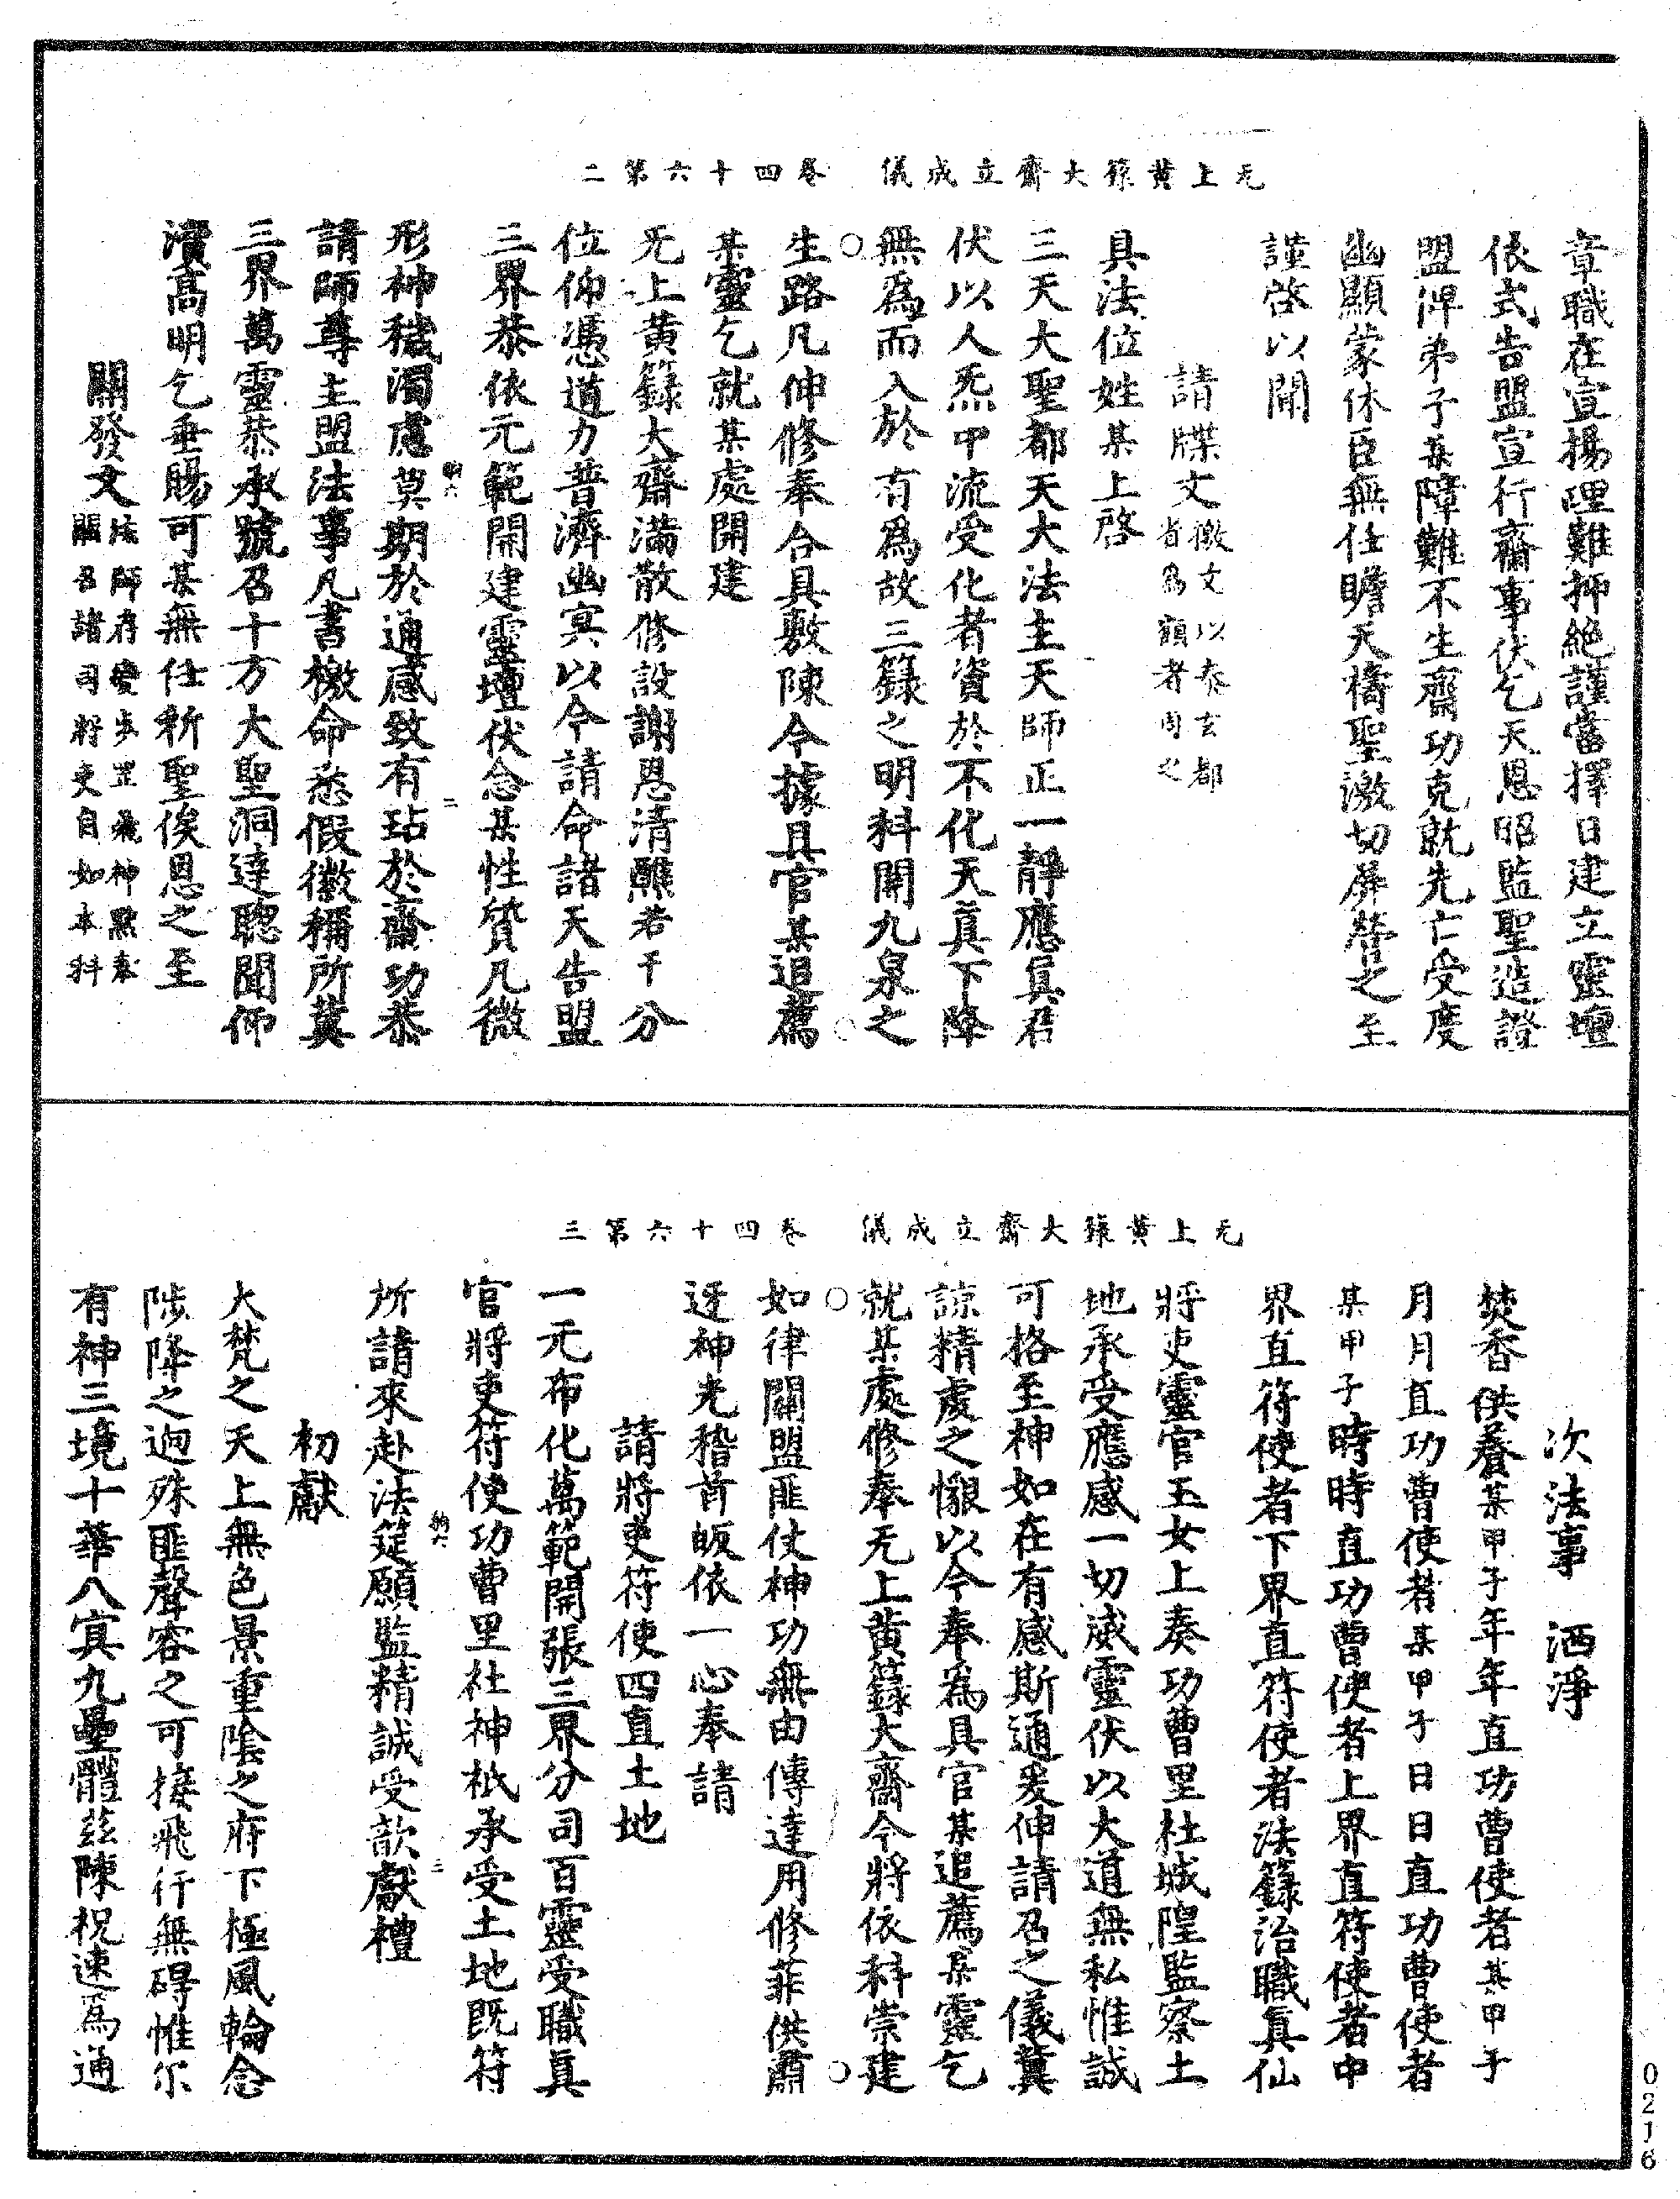 无上黃籙大齋立成儀　卷四十六第二
章職在宣揚理難抑絕謹當擇日建立靈壇
依式告盟宣行齋事伏乞天恩昭監聖造證
盟俾弟子某障難不生齋功克就先亡受度
幽顯蒙休臣無任瞻天禱聖激切屏營之至
謹啓以聞
請牒文徽文以泰玄都省爲額者用之
具法位姓某上啓
三天大聖都天大法主天師正一靜應眞君
伏以人炁甲流受化者資於不化天眞下降
無爲而入於有爲故三籙之明科開九泉之
生路凡伸修奉合具敷陳今據具官某追薦
某靈乞就某處開建
无上黃籙大齋滿散修設謝恩清醮若干分
位仰憑道力普濟幽冥以今請命諸天告盟
三界恭依元範開建靈壇伏念某性質凡微
形神穢濁慮莫期於通感致有玷於齋功恭
請師尊主盟法事凡書檄命悉假徽稱所冀
三界萬靈恭承號召十方大聖洞達聰聞仰
瀆高明乞垂賜可某無任祈聖俟恩之至
關發文法師存變步罡飛神默奏關召諸司將吏自如本科
无上黃籙大齋立成儀　卷四十六第三
次法事　洒淨
焚香供養某甲子年年直功曹使者某甲子
月月直功曹使者某甲子日日直功曹使者
某甲子時時直功曹使者上界直符使者中
界直符使者下界直符使者法籙治職眞仙
將吏靈官玉女上奏功曹里社城隍監察土
地承受應感一切威靈伏以大道無私惟誠
可格至神如在有感斯通爰伸請召之儀冀
諒精虔之懇以今奉爲具官某追薦某靈乞
就某處修奉无上黃籙大齋今將依科崇建
如律關盟匪仗神功無由傳達用修菲供肅
迓神光稽首皈依一心奉請
請將吏符使四直土地
一元布化萬範開張三界分司百靈受職眞
官將吏符使功曹里社神祇承受土地既符
所請來赴法筵願監精誠受歆獻禮
初獻
大梵之天上無色景重陰之府下極風輪念
陟降之迥殊匪聲容之可接飛行無碍惟尒
有神三境十華八冥九壘體茲陳祝速爲通
0216